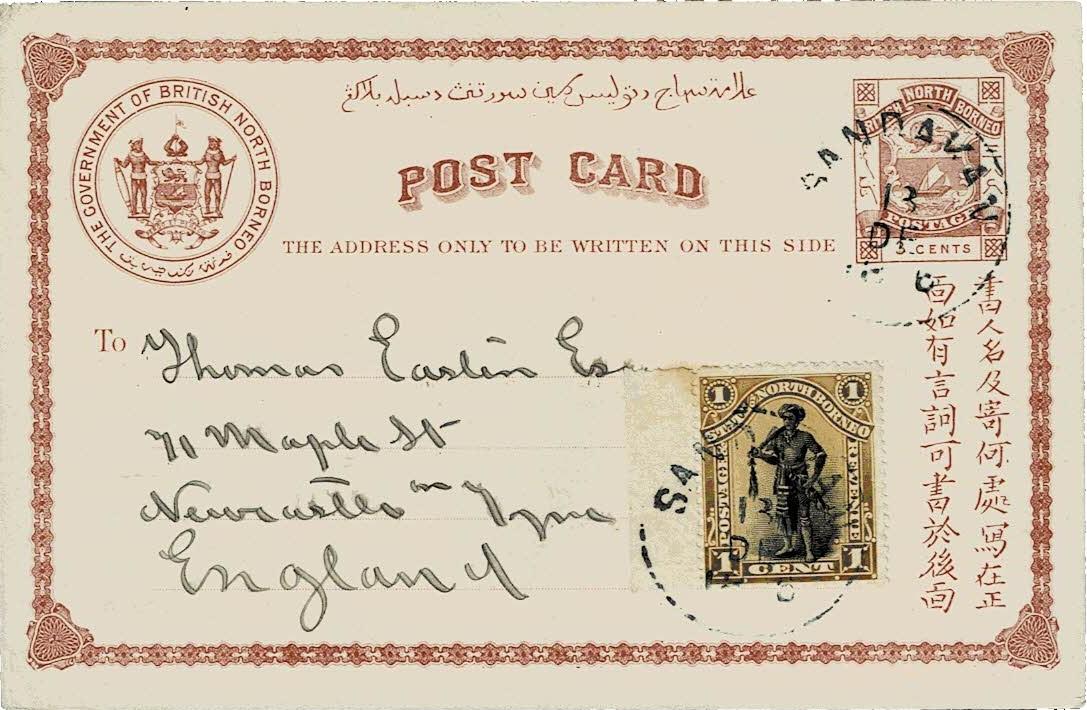 علامة سهاج دتوليس كمين سورتن دسبله بلاكڠ
THE GOVERNMENT OF BRITISH NORTH BORNEO
POST CARD
THE ADDRESS ONLY TO BE WRITTEN ON THIS SIDE
BRITISH NORTH BORNEO
POSTAGE
3 CENTS
SANDAKAN
13
DE
6
書人名及寄何處寫在正
面如有言詞可書於後面
To Thomas Eastin Esq
71 Maple St
Newcastle on Tyne
England
1 1
NORTH BORNEO
POSTAGE & REVENUE
1 CENT 1
SAN
13
D
6